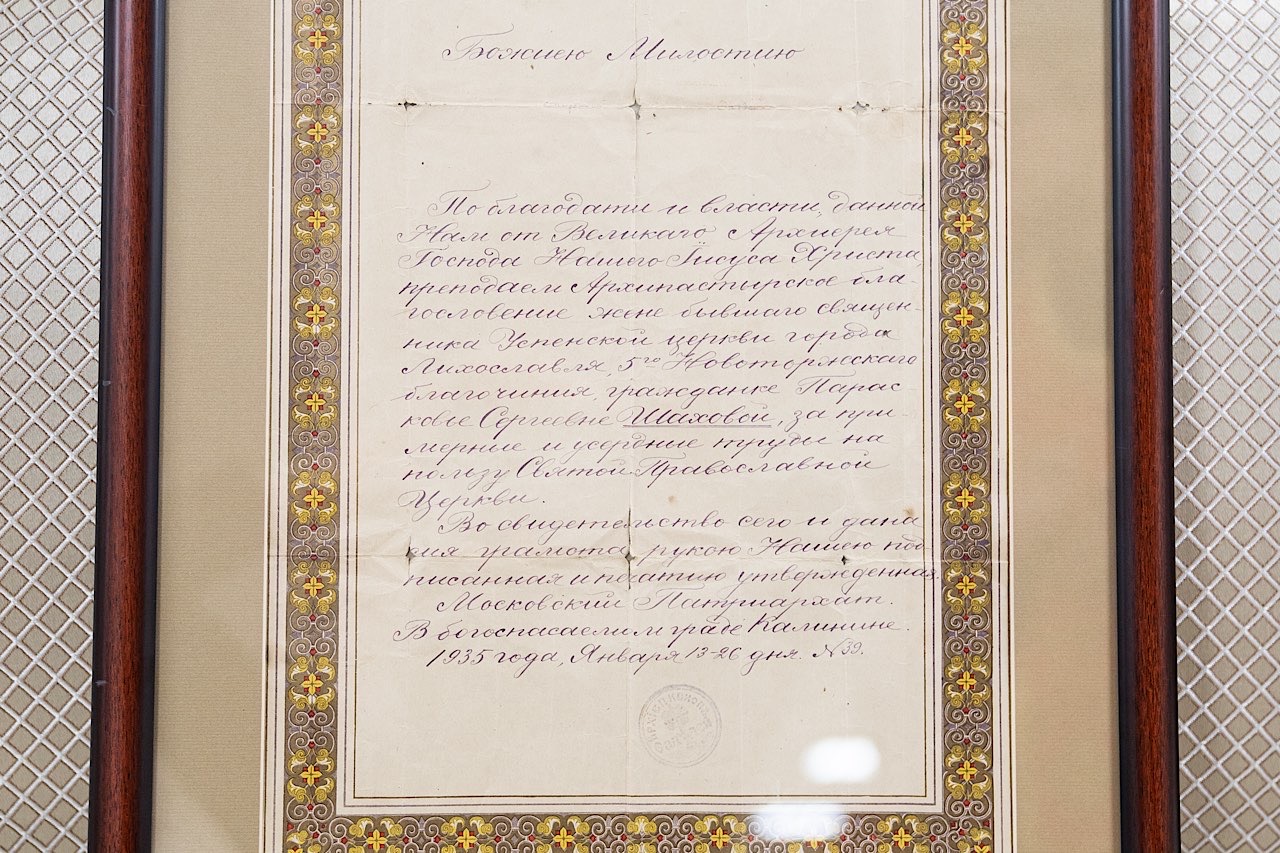 Божиею Милостию
По благодати и власти, данной
Нам от Великаго Архиерея
Господа Нашего Іисуса Христа,
преподаем Архипастырское бла-
гословение жене бывшаго священ-
ника Успенской церкви города
Лихославля, 5го Новоторжскаго
благочиния, гражданке Парас
ковье Сергеевне Шаховой, за при-
мерные и усердные труды на
пользу Святой Православной
Церкви.
Во свидетельство сего и дана
сия грамота рукою Нашею под
писанная и печатию утвержденная.
Московский Патриархат.
В богоспасаемом граде Калинине.
1935 года, Января 13-26 дня. №39.